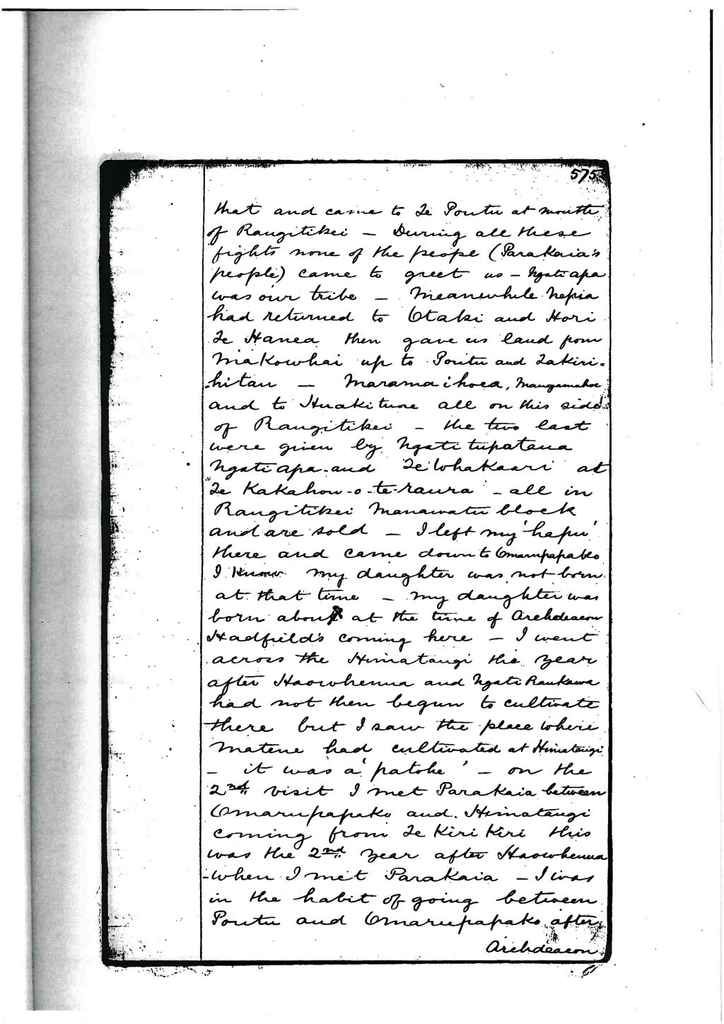 575
that and came to Te Poutu at mouth
of Rangitikei – During all these
fights none of the people (Parakaia's
people) came to greet us – Ngatiapa
was our tribe – Meanwhile Nepia
had returned to Otaki and Hori
Te Hanea then gave us land from
Makowhai up to Poutu and Takiri-
hitau – Maramaihoea, Mangamahoe
and to Huakitune all on this side
of Rangitikei – the two last
were given by Ngati tupataua
Ngatiapa and Te Whakaari at
Te Kakahou-o-te-raura – all in
Rangitikei Manawatu block
and are sold – I left my 'hapu'
there and came down to Omarupapako
I know my daughter was not born
at that time – my daughter was
born about at the time of Archdeacon
Hadfield's coming here – I went
across the Himatangi the year
after Haowhenua and Ngati Raukawa
had not then begun to cultivate
there but I saw the place where
Matene had cultivated at Himatangi
– it was a 'patohe' – on the
2nd visit I met Parakaia between
Omarupapako and Himatangi
coming from Te Kiri Kiri this
was the 2nd year after Haowhenua
– when I met Parakaia – I was
in the habit of going between
Poutu and Omarupapako after
Archdeacon